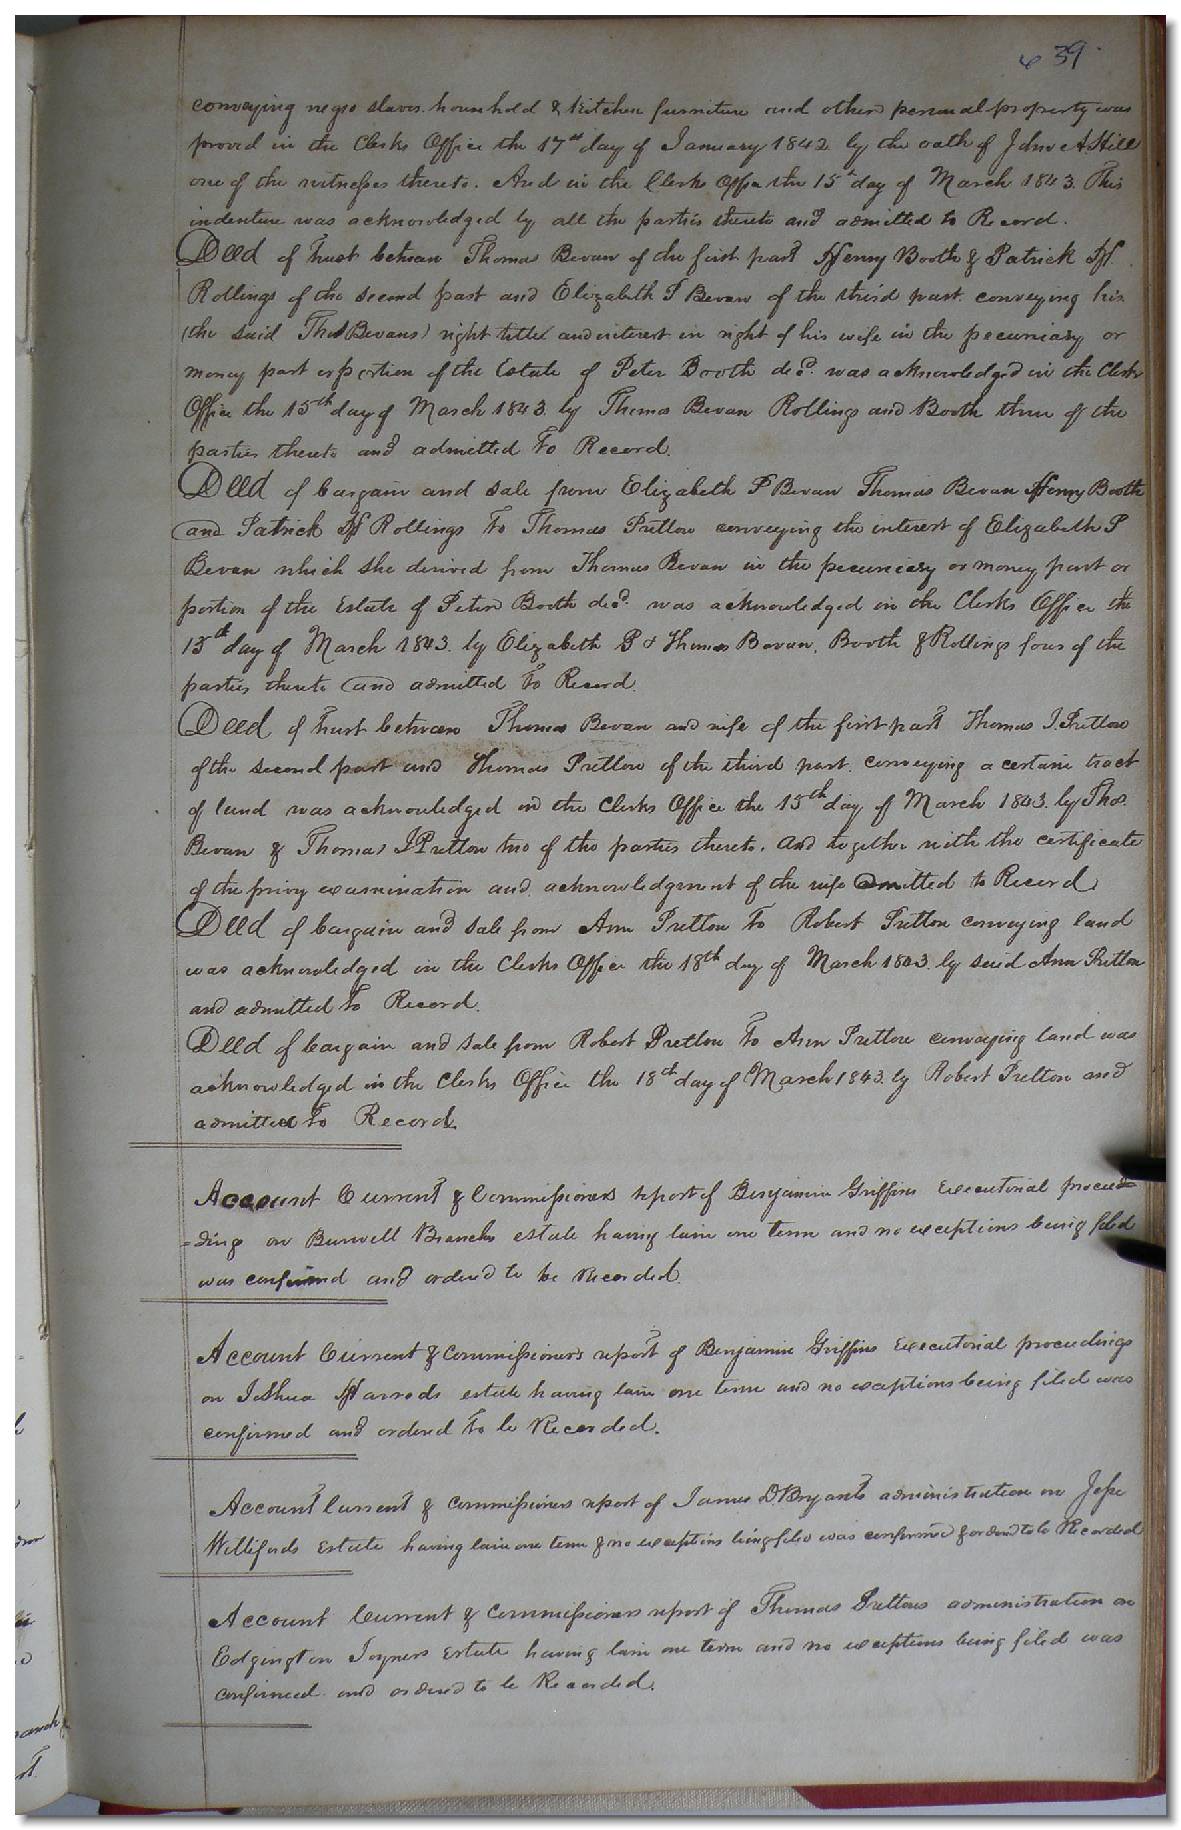 439
conveying negro slaves household & kitchen furniture and other personal property was
proved in the Clerks Office the 17th day of January 1842 by the oath of John A Hill
one of the witnesses thereto. And in the Clerks Office the 15th day of March 1843. This
indenture was acknowledged by all the parties thereto and admitted to Record.
Deed of trust between Thomas Bevan of the first part Henry Booth & Patrick H.
Rollings of the second part and Elizabeth P Bevan of the third part. conveying his
(the said Thos Bevans) right title and interest in right of his wife in the pecuniary or
money part or portion of the Estate of Peter Booth decd. was acknowledged in the Clerks
Office the 15th day of March 1843. by Thomas Bevan Rollings and Booth three of the
parties thereto and admitted to Record.
Deed of bargain and sale from Elizabeth P Bevan Thomas Bevan Henry Booth
and Patrick H Rollings to Thomas Pretlow conveying the interest of Elizabeth P
Bevan which she derived from Thomas Bevan in the pecuniary or money part or
portion of the Estate of Peter Booth decd. was acknowledged in the Clerks Office the
15th day of March 1843. by Elizabeth P & Thomas Bevan, Booth & Rollings four of the
parties thereto and admitted to Record.
Deed of trust between Thomas Bevan and wife of the first part Thomas J Pretlow
of the second part and Thomas Pretlow of the third part. conveying a certain tract
of land was acknowledged in the Clerks Office the 15th day of March 1843. by Thos.
Bevan & Thomas J Pretlow two of the parties thereto. and together with the certificate
of the privy examination and acknowledgment of the wife admitted to Record
Deed of bargain and sale from Ann Pretlow to Robert Pretlow conveying land
was acknowledged in the Clerks Office the 18th day of March 1843. by said Ann Pretlow
and admitted to Record.
Deed of bargain and sale from Robert Pretlow to Ann Pretlow conveying land was
acknowledged in the Clerks Office the 18th day of March 1843. by Robert Pretlow and
admitted to Record.
Account Current & Commissioners report of Benjamin Griffins Executorial procee
=dings on Burwell Branchs estate having lain one term and no exceptions being filed
was confirmed and ordered to be Recorded.
Account Current & Commissioners report of Benjamin Griffins Executorial proceedings
on Joshua Harrods estate having lain one term and no exceptions being filed was
confirmed and ordered to be Recorded.
Account Current & Commissioners report of James D. Bryants administration on Jesse
Willifords Estate having lain one term & no exceptions being filed was confirmed & ordered to be Recorded
Account Current & Commissioners report of Thomas Pretlows administration on
Edgington Joyners Estate having lain one term and no exceptions being filed was
confirmed and ordered to be Recorded.